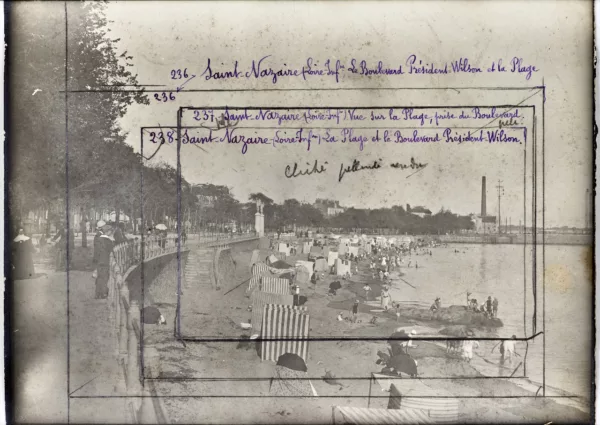 236_ Saint-Nazaire (Loire-Infre) Le Boulevard Président Wilson et la Plage
236
237_ Saint-Nazaire (Loire-Infre) Vue sur la Plage, prise du Boulevard.
238_Saint-Nazaire (Loire-Infre)_La Plage et le Boulevard Président-Wilson.
Cliché